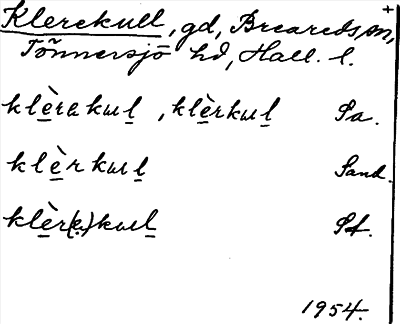 Klerekull, gd, Breareds sn, +
Tönnersjö hd, Hall. l.
klèrakuḻ, klèrkuḻ Sa.
klèrkuḻ Sand.
klèr(e)kuḻ St.
1954.